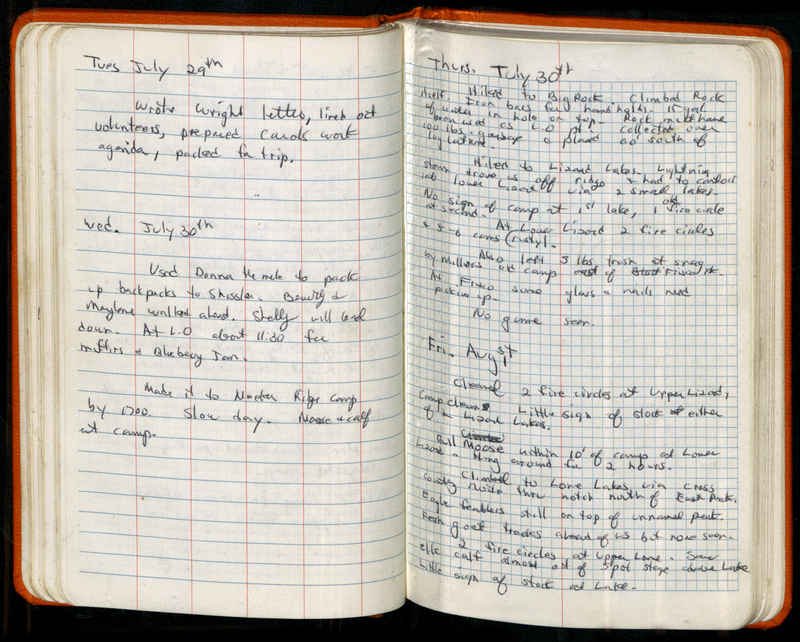 Tues July 29th
Wrote Wright letter, lined out
volunteers, prepared Carols work
agenda, packed for trip.
Wed. July 30th
Used Donna the mule to pack
up backpacks to Shissler. Beverly &
walked ahead. Shelly will lead
down. At L.O about 11:30 for
muffins & Blueberry Jam.
Made it to Ridge Camp
by 1700. Slow day. Moose & calf
at camp.
Thurs. July 30th
Hiked to Big Rock. Climbed Rock
itself. Iron bars for hand holds. 15 gal
of water in hole on top. Rock might have
been used as L.O pt. Collected over
100 lbs garbage & placed 60' south of
log latrine.
Hiked to Lizard Lakes. Lightning
storm drove us off ridge & had to contour
into lower Lizard via 2 small lakes.
No sign of camp at 1st lake, 1 old fire circle
at second. At Lower Lizard 2 fire circles
& 5-6 cans (rusty).
Also left 5 lbs trash at snag
by Millers old camp east of Frisco
At Frisco some glass & nails need
picking up.
No game seen.
Fri. Aug 1st
Cleaned 2 fire circles at Upper Lizard,
Camp clean. Little sign of stock at either
of Lizard Lakes.
Bull Moose within 10' of camp at Lower
Lizard - Hung around for 2 hours.
Climbed to Lone Lakes via cross
country route thru notch north of East Peak.
Eagle feathers still on top of unnamed peak.
Fresh goat tracks ahead of us but none seen.
2 fire circles at Upper Lone. Saw
elk calf almost out of spot stage above Lake
Little sign of stock at Lake.